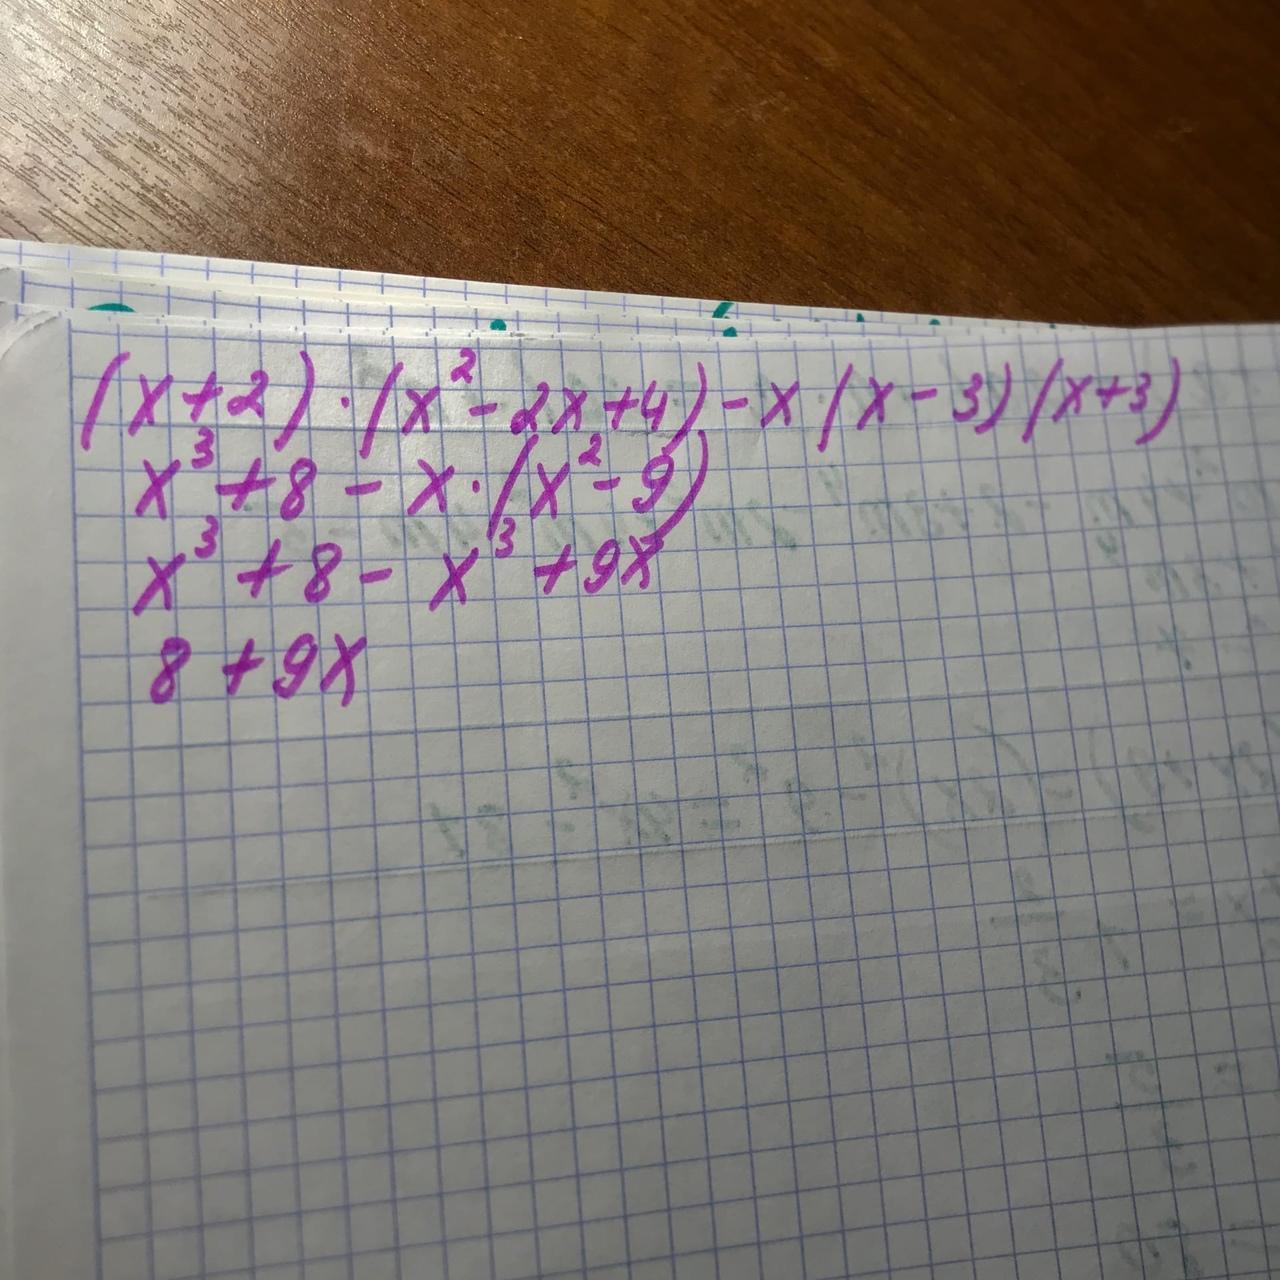 (x+2)·(x²-2x+4)-x(x-3)(x+3)
x³+8-x·(x²-9)
x³+8-x³+9x
8+9x